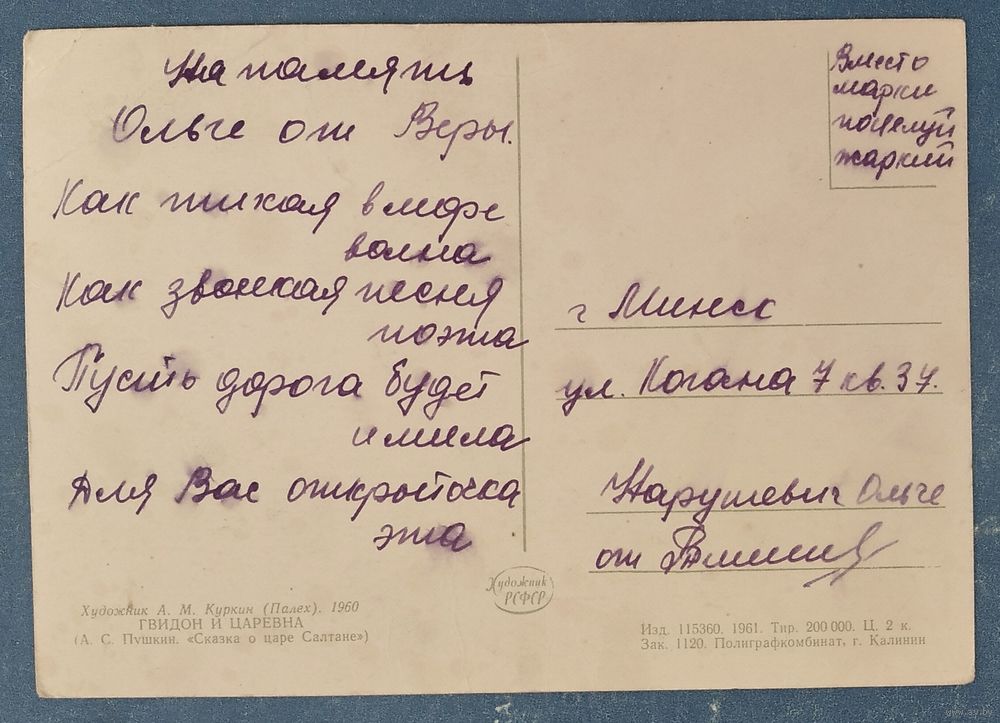 На память
Ольге от Веры.
Как тихая в море
волна
Как звонкая песня
поэта
Пусть дорога будет
и мила
Для Вас открыточка
эта
Вместо
марки
поцелуй
жаркий
г Минск
ул. Когана 7 кв. 37.
Нарушевич Ольге
от
Художник А. М. Куркин (Палех). 1960
ГВИДОН И ЦАРЕВНА
(А. С. Пушкин. «Сказка о царе Салтане»)
Художник
РСФСР
Изд. 115360. 1961. Тир. 200 000. Ц. 2 к.
Зак. 1120. Полиграфкомбинат, г. Калинин
www.ay.by